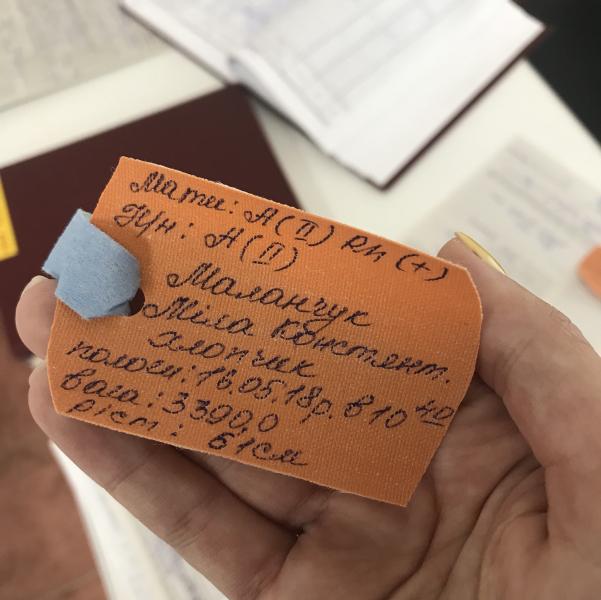 Мати: A(II) Rh (+)
Пун: A(II)
Маланчук
Міла Констянт.
хлопчик
пологи: 16.05.18р. в 10 40
вага: 3300,0
ріст: 51см